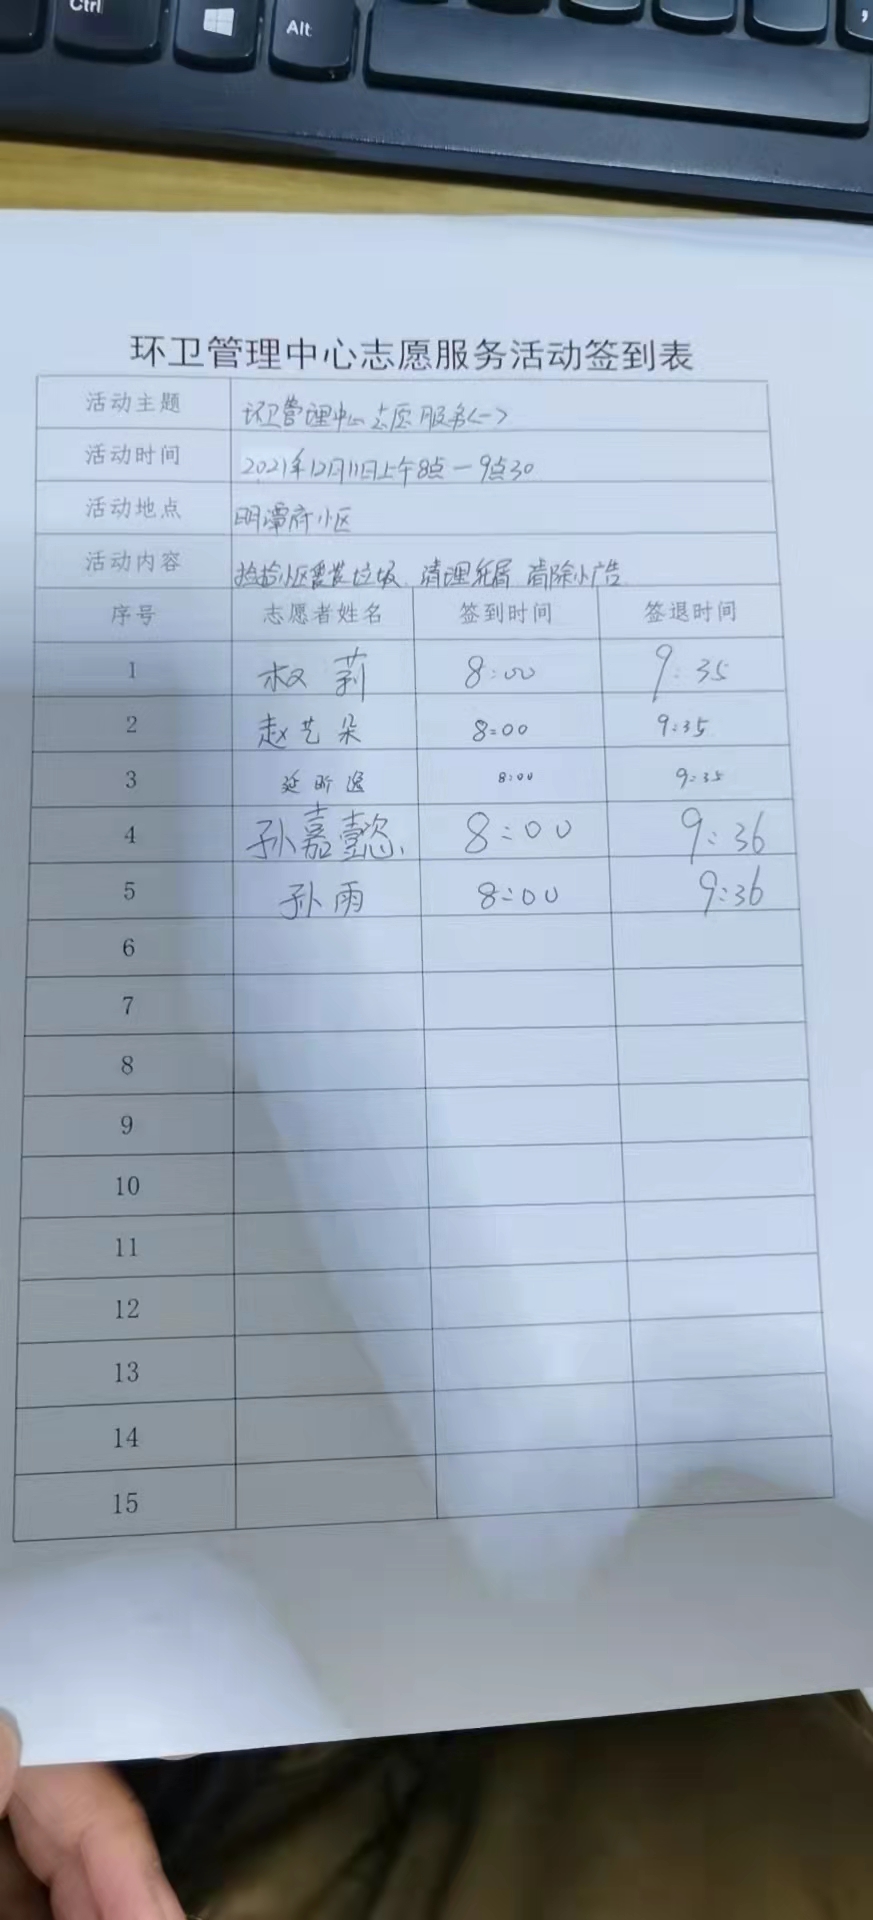 Ctrl
Alt
环卫管理中心志愿服务活动签到表
活动主题 环卫管理中心志愿服务<一>
活动时间 2021年12月11日上午8点一9点30
活动地点 明潭府小区
活动内容 捡拾小区 垃圾 清理死角 清除小广告
序号 志愿者姓名 签到时间 签退时间
1 权莉 8:00 9:35
2 赵艺朵 8:00 9:35
3 延昕 8:00 9:35
4 孙嘉懿 8:00 9:36
5 孙雨 8:00 9:36
6
7
8
9
10
11
12
13
14
15